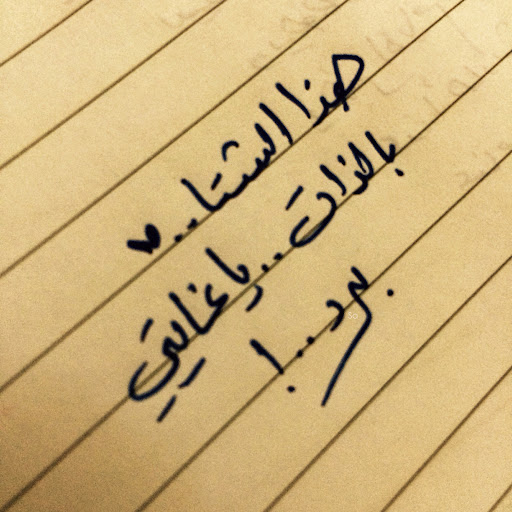 هذا الشتا.. ♥
بالذات.. يا غاليتي
برد...!